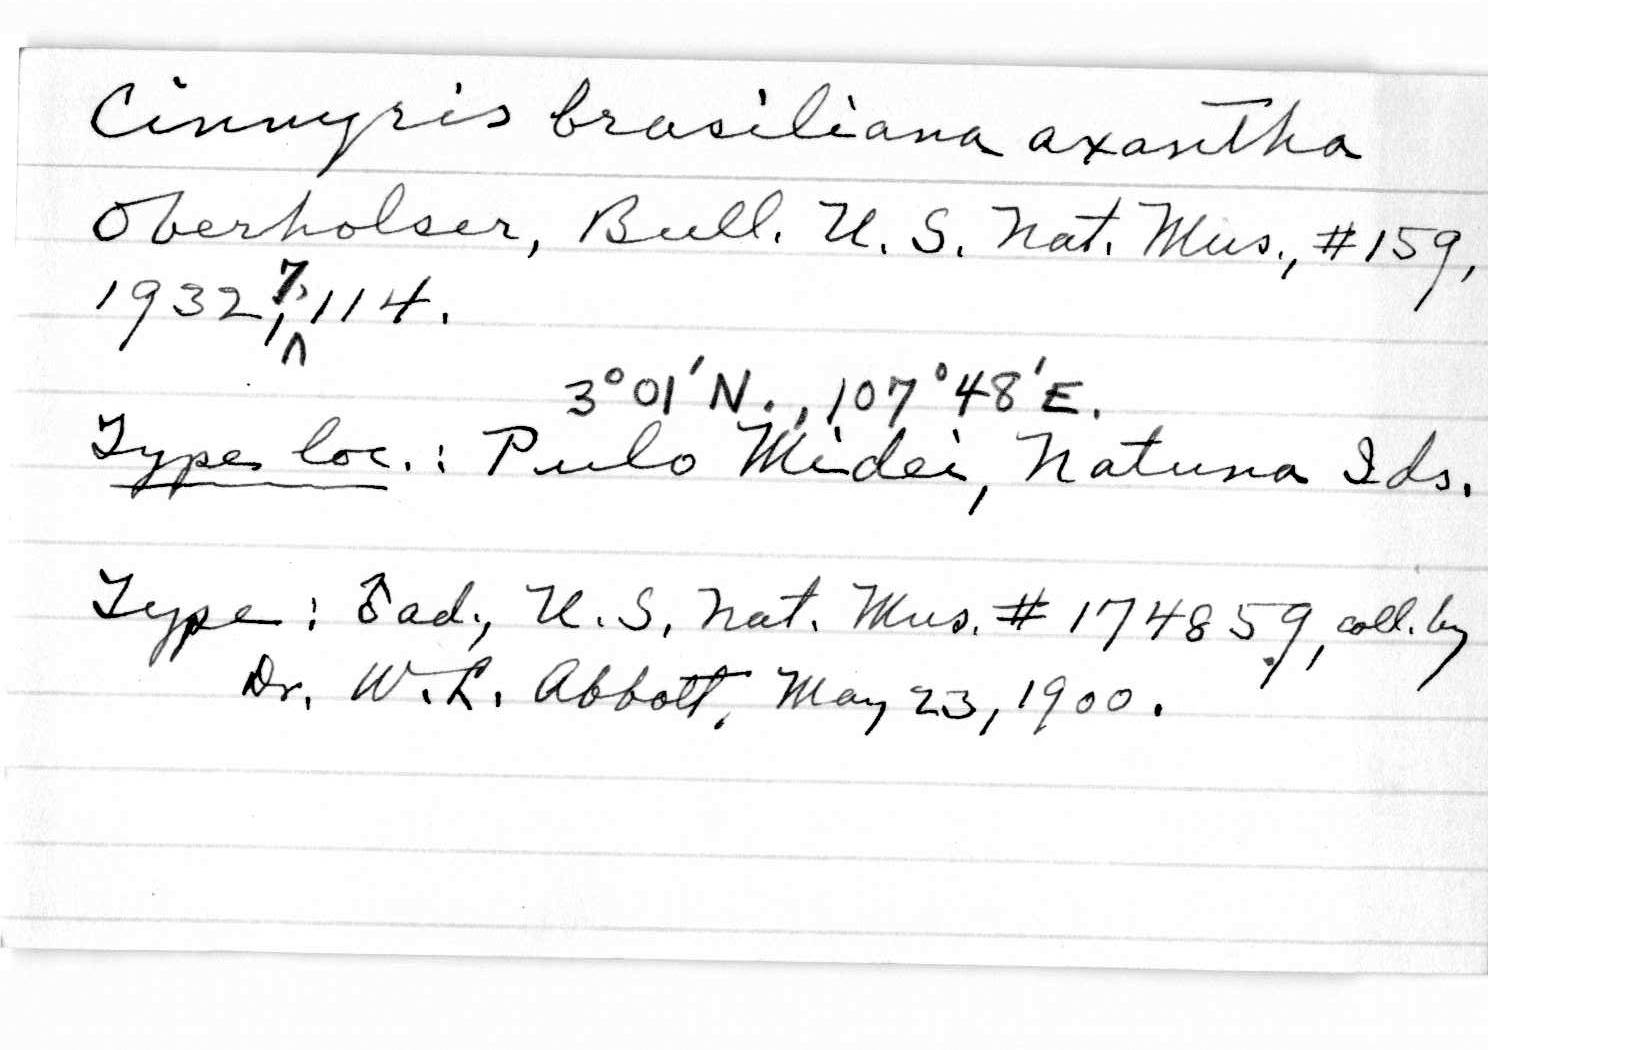 Cinnyris brasiliana axantha
Oberholser, Bull. U. S. Nat. Mus., #159,
1932, 7, 114.
3°01'N., 107°48'E.
Type loc.: Pulo Midei, Natuna Ids.
Type: ♂ ad., U. S. Nat. Mus. #174859, coll. by
Dr. W. L. Abbott, May 23, 1900.